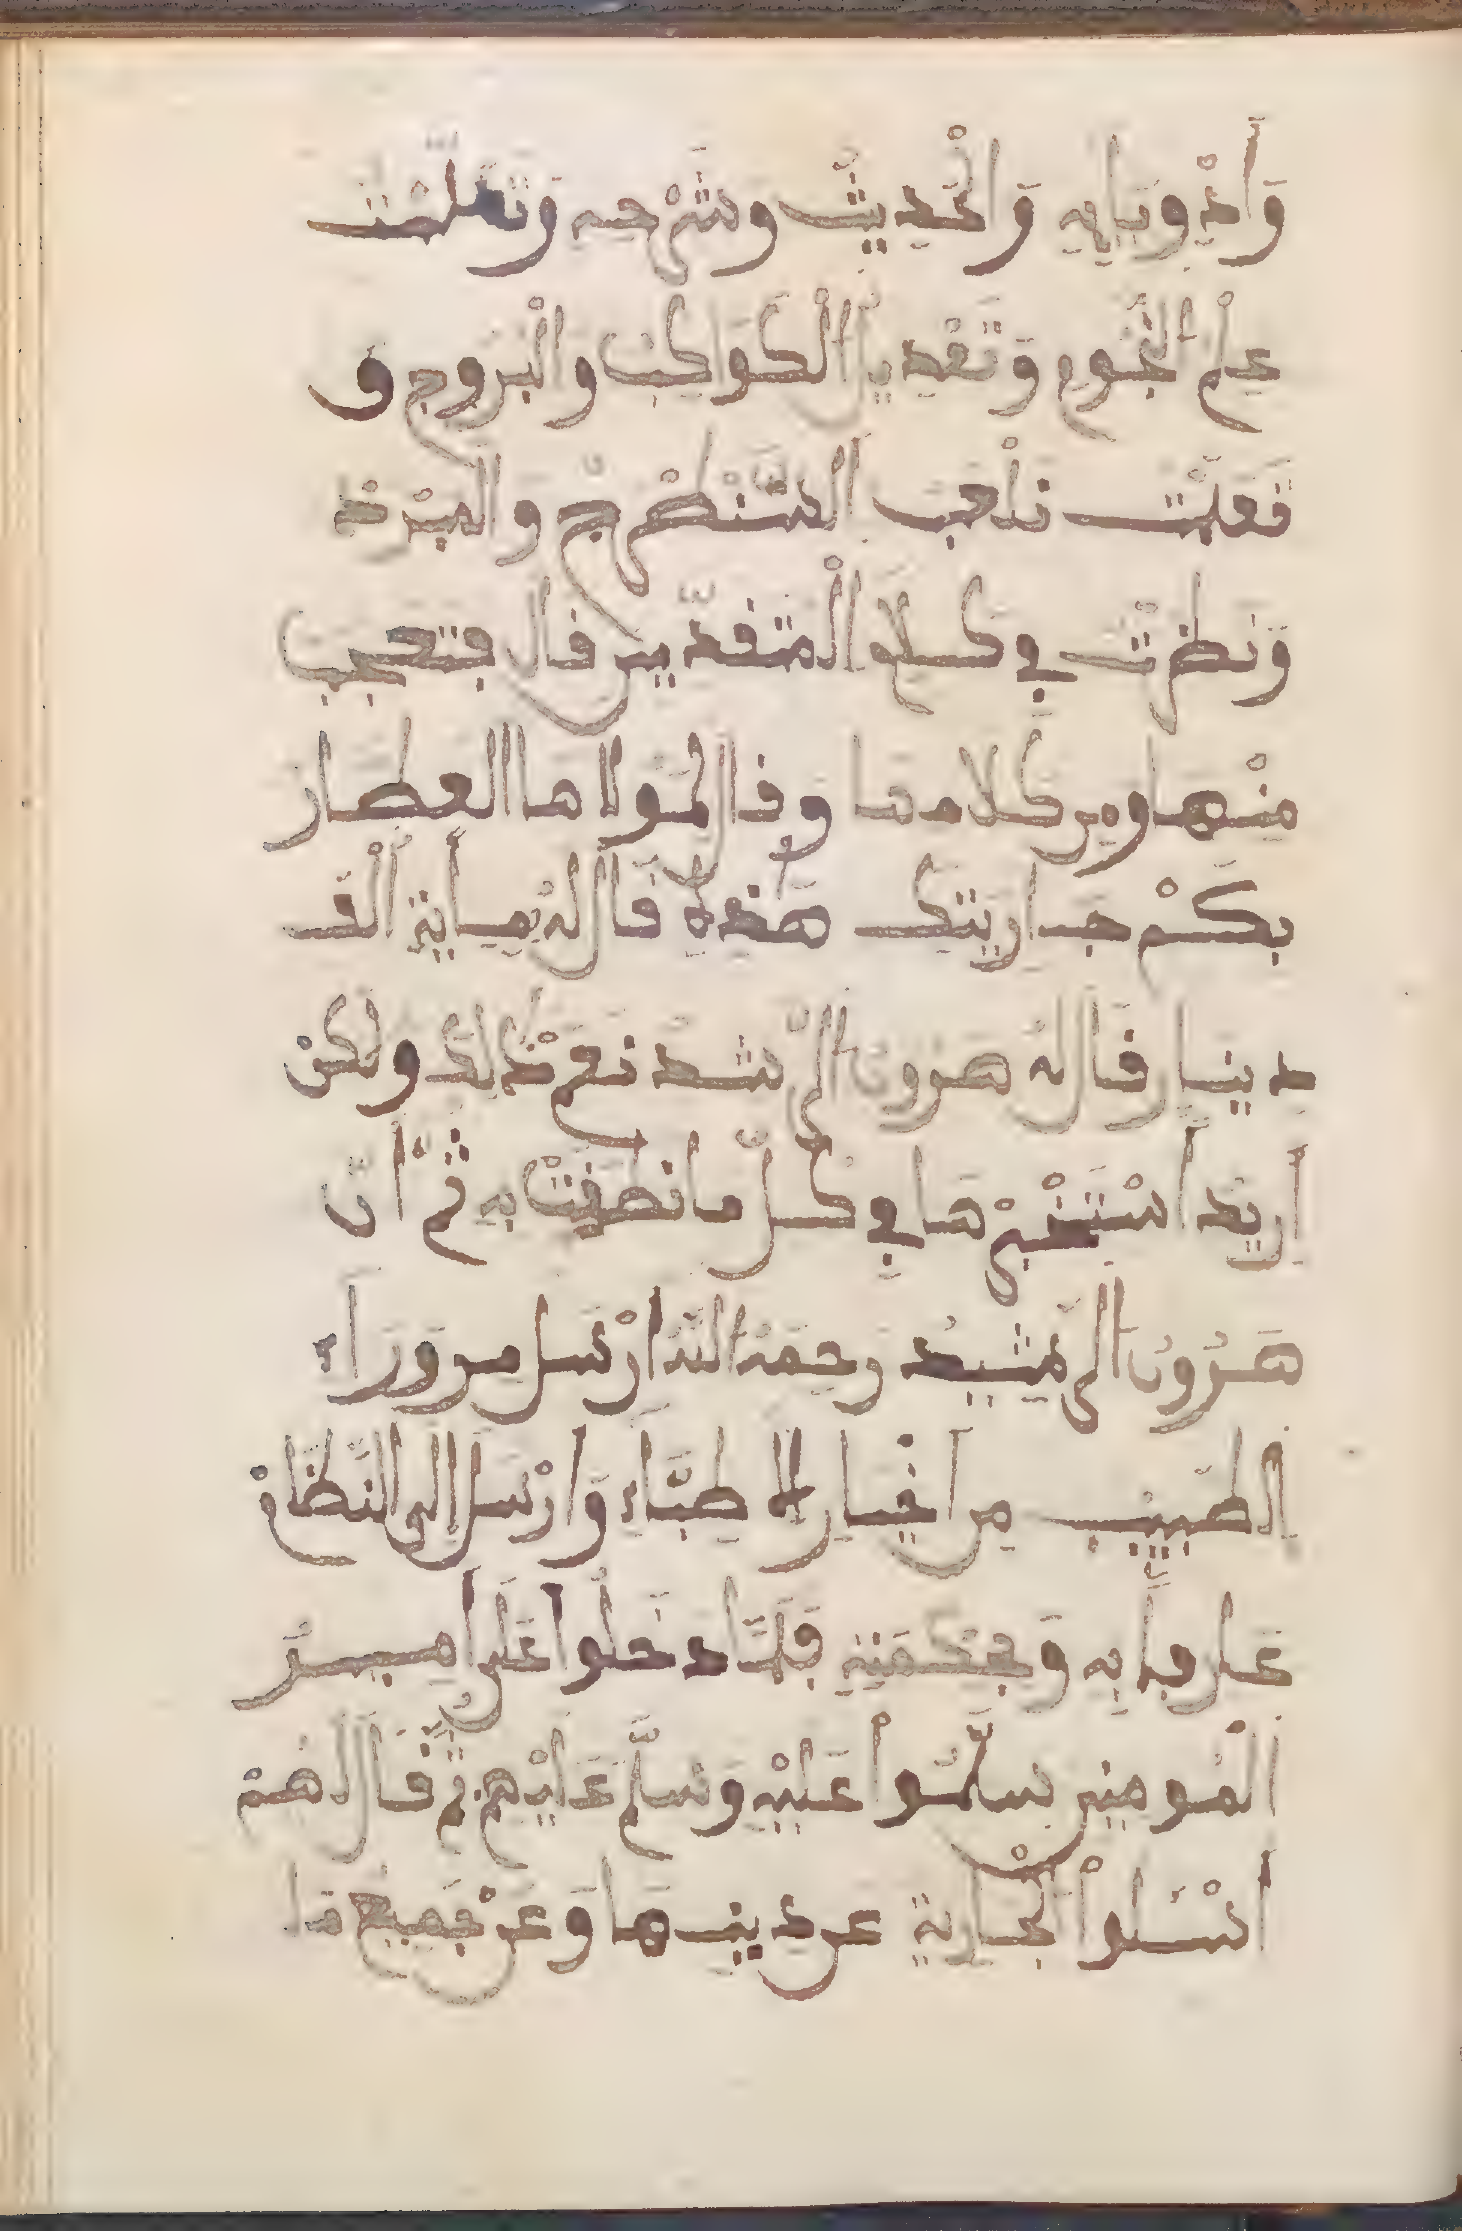 وَأَدْوِيَايِهِ وَالْحَدِيثِ وشَرْحِهِ وَتَعَلَّمْتُ
عِلْمَ النُّجُومِ وَتَعْدِيلَ الْكَوَاكِبِ والْبُرُوجِ و
تَعَلَّمْتُ نَلْعَبُ الشَّنْطَرْجَ والنَّرْد
وَنَظَرْتُ فِي كَلَامِ الْمُتَقَدِّمِين قال فتعجب
مِنْها ومن كلامها وقال لمَوْلَاها العطار
بكَمْ جاريتك هَذِهِ قَال لهُ بِمِأية ألف
دينار قال لهُ هرون الرّشيد نعم ذلك ولكنْ
أريدُ أسْتَخْبِرْها في كلّ ما نطقتْ به ثمّ انّ
هَرُونَ الرشِيدُ رحمَهُ اللهُ ارْسَل من وراء
الطبيب من اخْيار الاطبّاءِ وَارْسَل الى النظام
عارفاً به وَبحكمَتِهِ فلمّا دخلُوا عَلى امير
الْمُومنين سلّمُوا عَلَيْهِ وَسلّم عَليْهم ثم قَال لهُمْ
اسْئلوا الْجارية عن دينِها وَعَنْ جَميع ما